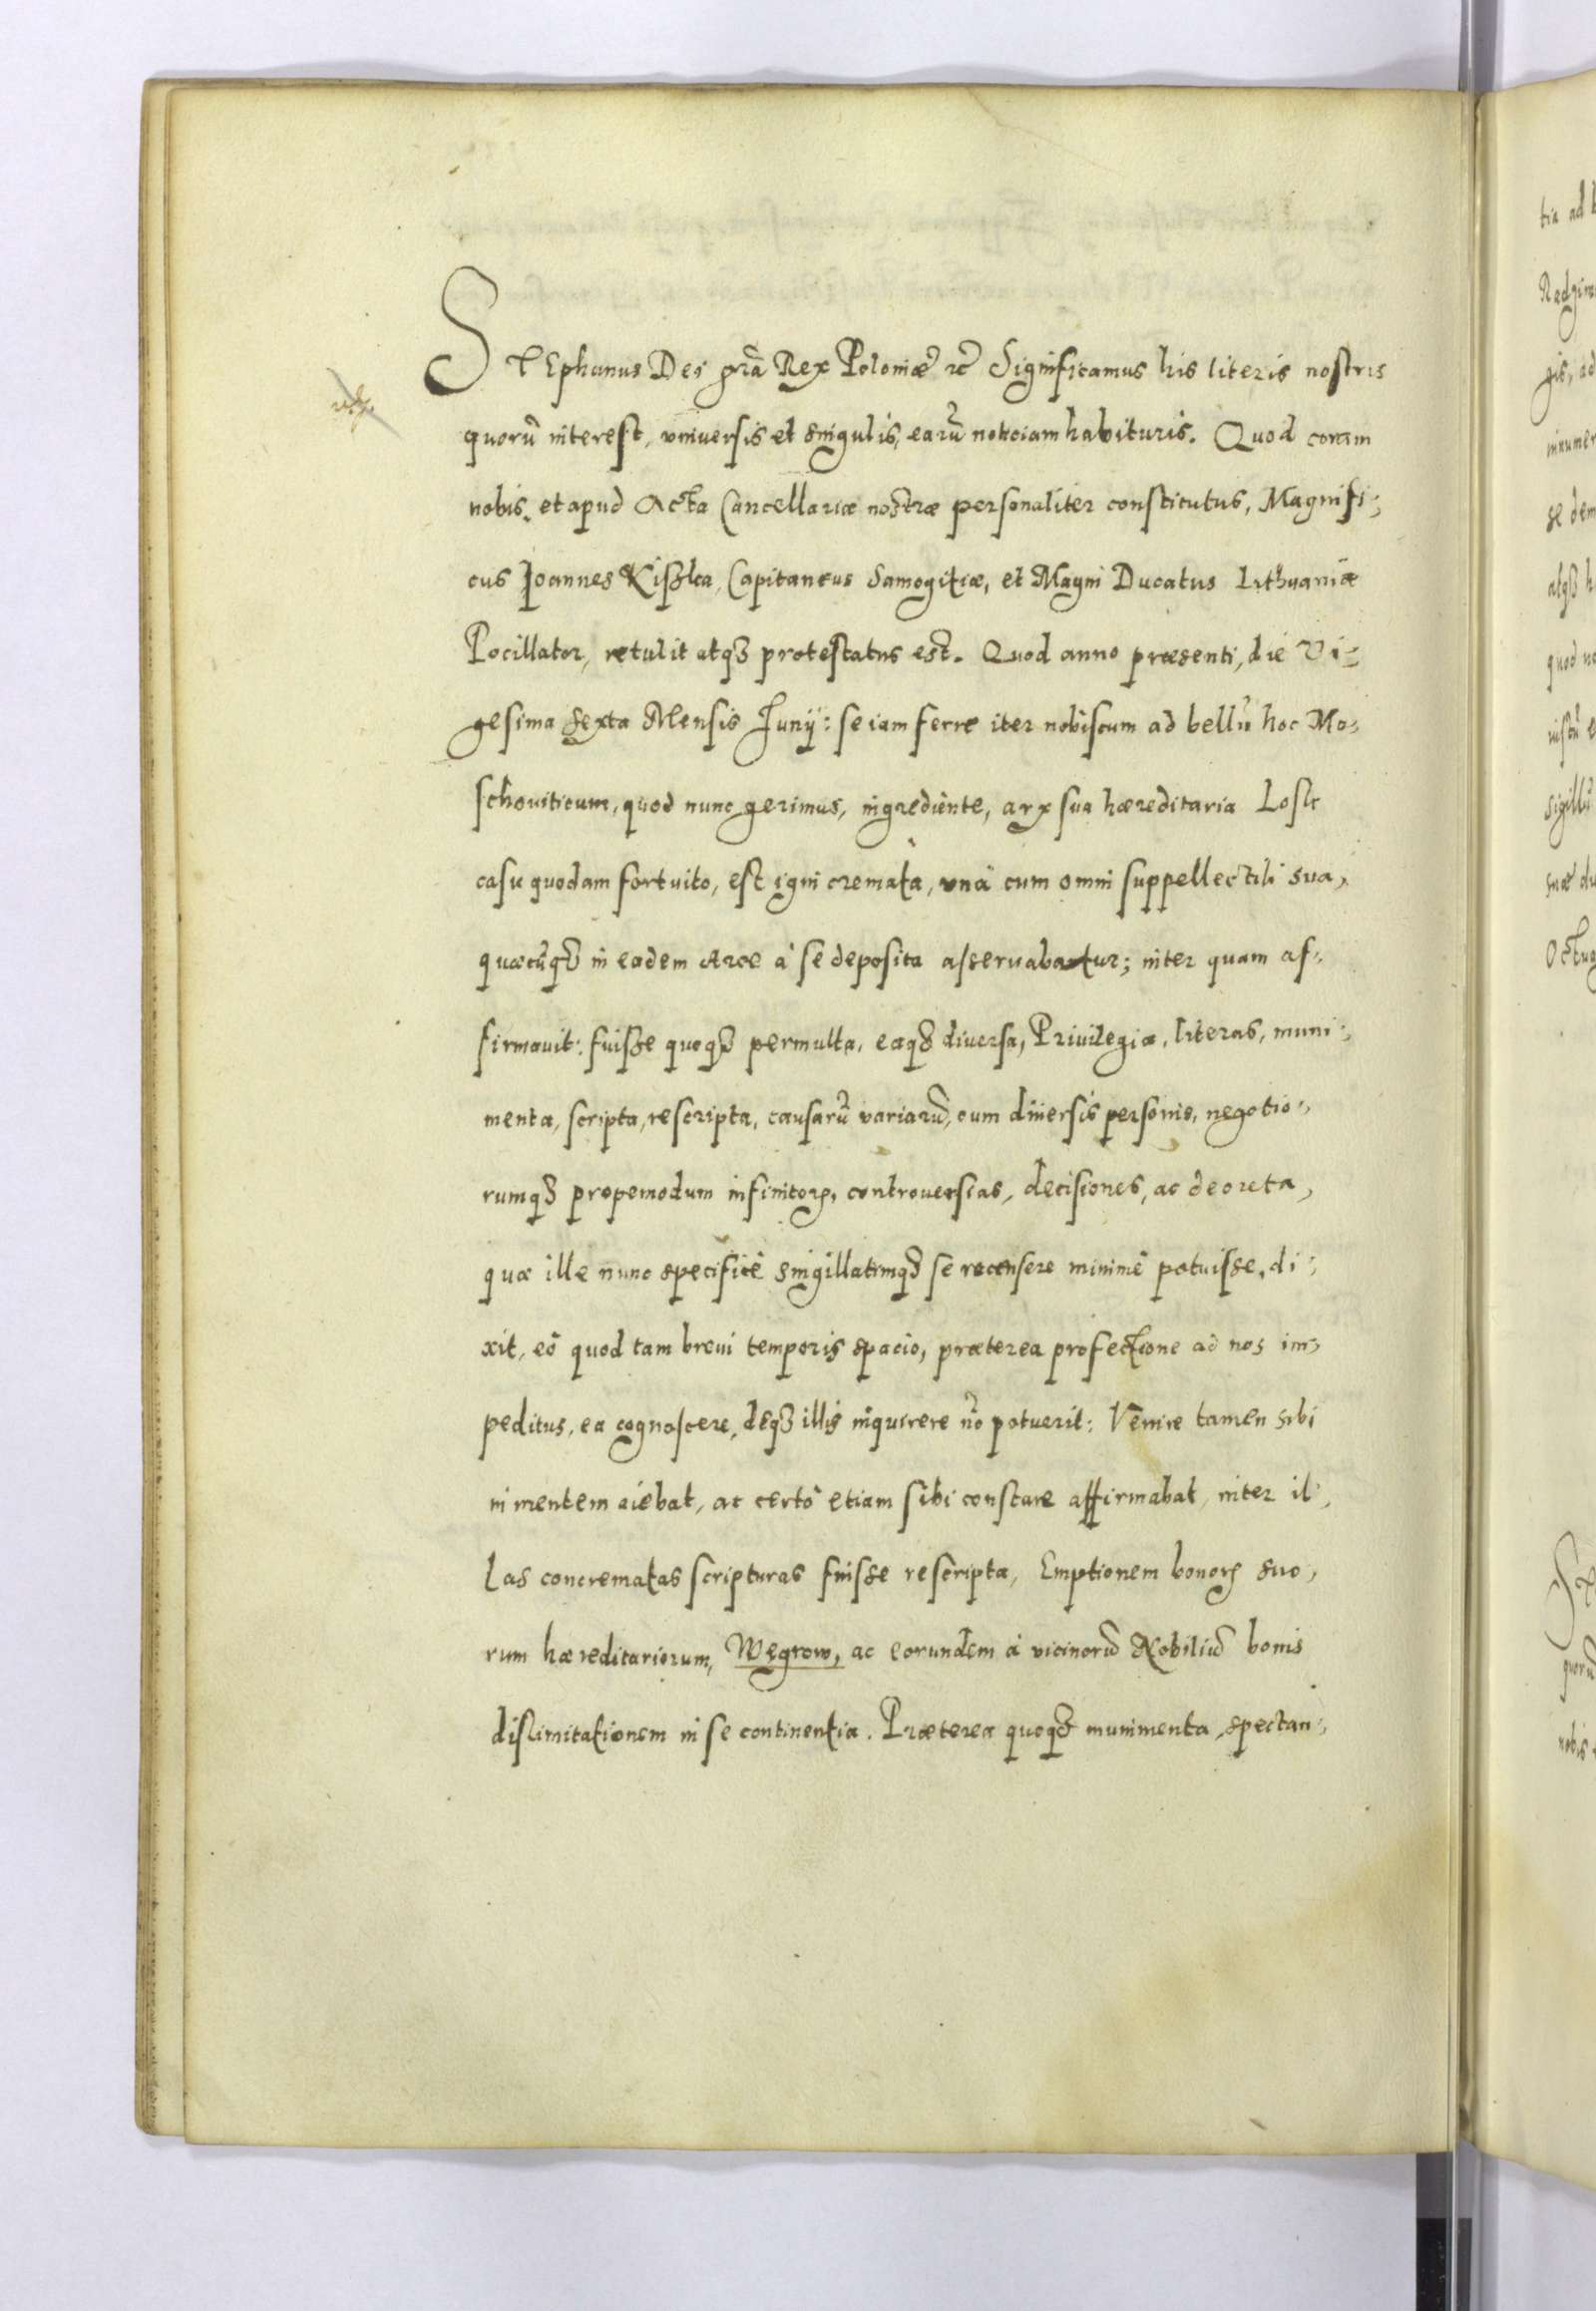 StEphanus Dei grã Rex Poloniæ rc̃ Significamus his literis nostris
quorũ interest, vniuersis et singulis, earũ noticiam habituris. Quod coram
nobis, et apud Acta Cancellariæ nostræ personaliter constitutus, Magnifi:
cus Joannes Kiszka, Capitaneus Samogitiæ, et Magni Ducatus Lithuaniæ
Pocillator, retulit atqȝ protestatus est. Quod anno præsenti, die Vi:
gesima sexta Mensis Junij: se iam ferre iter nobiscum ad bellũ hoc Mo:
schouiticum, quod nunc gerimus, ingrediente, arx sua hæreditaria Losk
casu quodam fortuito, est igni cremata, vnà cum omni suppellectili sua,
quæcũqȝ in eadem Arce à se deposita asseruabatur; inter quam af:
firmauit: fuisse quoqȝ permulta, eaqȝ diuersa, Priuilegia, literas, muni:
menta, scripta, rescripta, causarũ variarũ, cum diuersis personis, negotio:
rumqȝ propemodum infinitoꝝ, controuersias, decisiones, ac decreta,
quæ ille nunc specificè singillatimqȝ se recensere minimè potuisse, di:
xit, eò quod tam breui temporis spacio, præterea profectione ad nos im:
peditus, ea cognoscere, deqȝ illis inquirere nõ potuerit: Venire tamen sibi
in mentem aiebat, ac certò etiam sibi constare affirmabat, inter il:
las concrematas scripturas fuisse rescripta, Emptionem bonoꝝ suo:
rum hæreditariorum, Wegrow, ac eorundem à vicinorũ Nobiliũ bonis
dislimitationem in se continentia. Præterea quoqȝ munimenta, spectan: